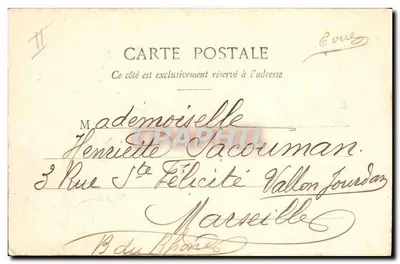 II
6 vues
CARTE POSTALE
Ce côté est exclusivement réservé à l'adresse
Mademoiselle
Henriette Jacouman.
3 Rue Ste Félicité Vallon Jourdan
Marseille
B du Rhône